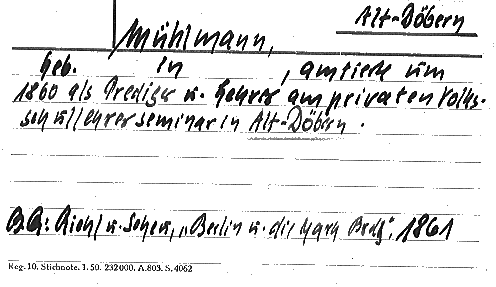 Alt-Döbern
Mühlmann,
geb. in , amtierte um
1860 als Prediger u. Lehrer am privaten Volks-
schullehrerseminar in Alt-Döbern.
B.Q.: Riehl u. Scheu, "Berlin u. die Mark Brdbg", 1861
Reg. 10. Stichnote. 1. 50. 232000. A. 803. S. 4062